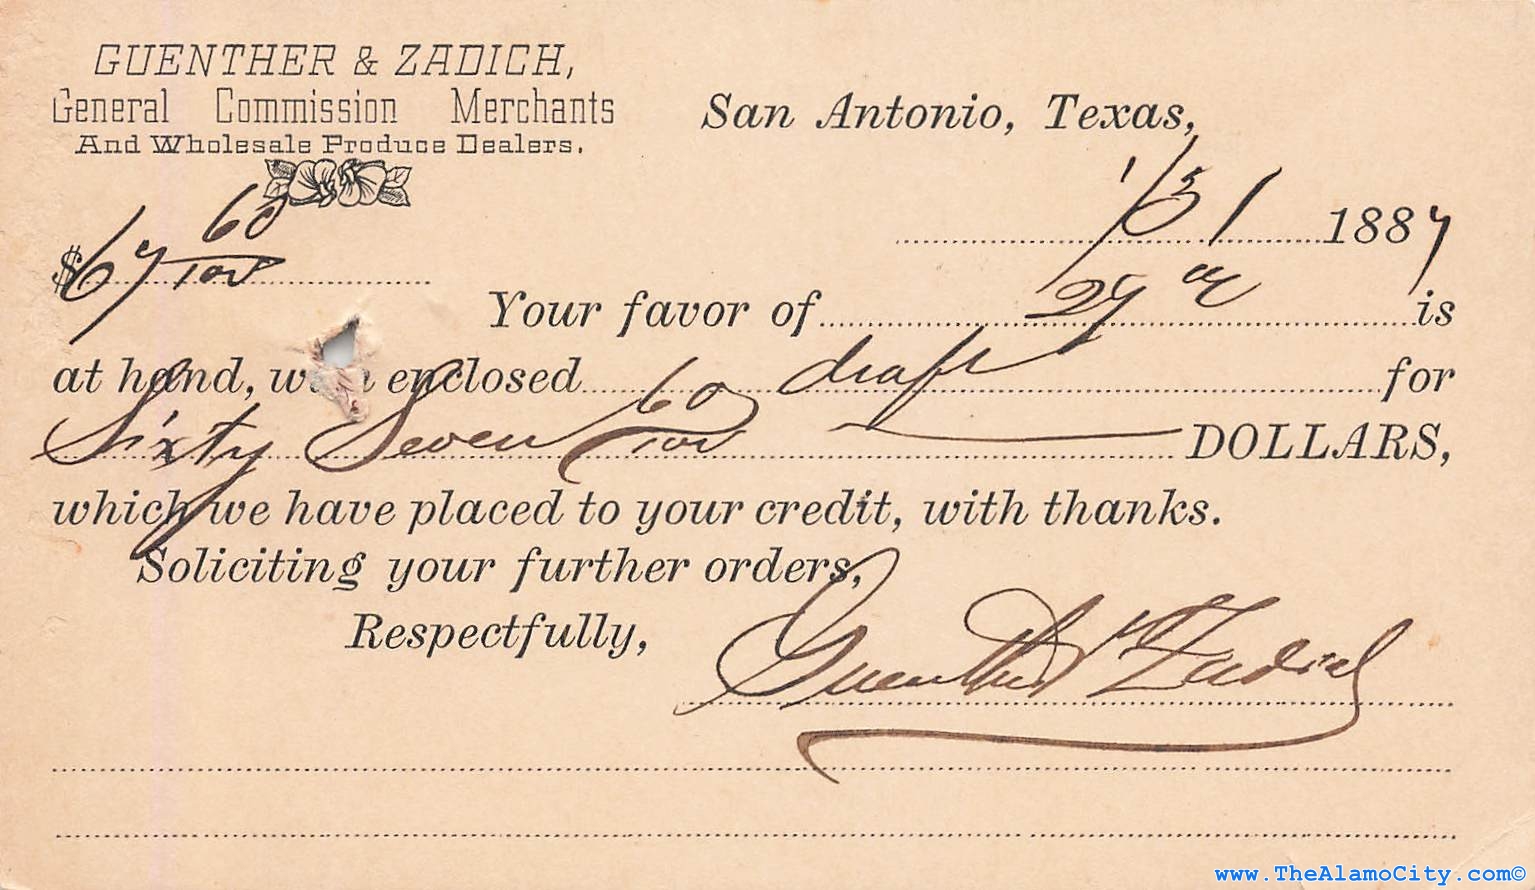 GUENTHER & ZADICH,
General Commission Merchants
And Wholesale Produce Dealers.
San Antonio, Texas,
1/31 1887
$67 60/100
Your favor of 29 is
at hand, with enclosed draft for
Sixty Seven 60/100 DOLLARS,
which we have placed to your credit, with thanks.
Soliciting your further orders,
Respectfully,
Guenther & Zadich
www.TheAlamoCity.com©